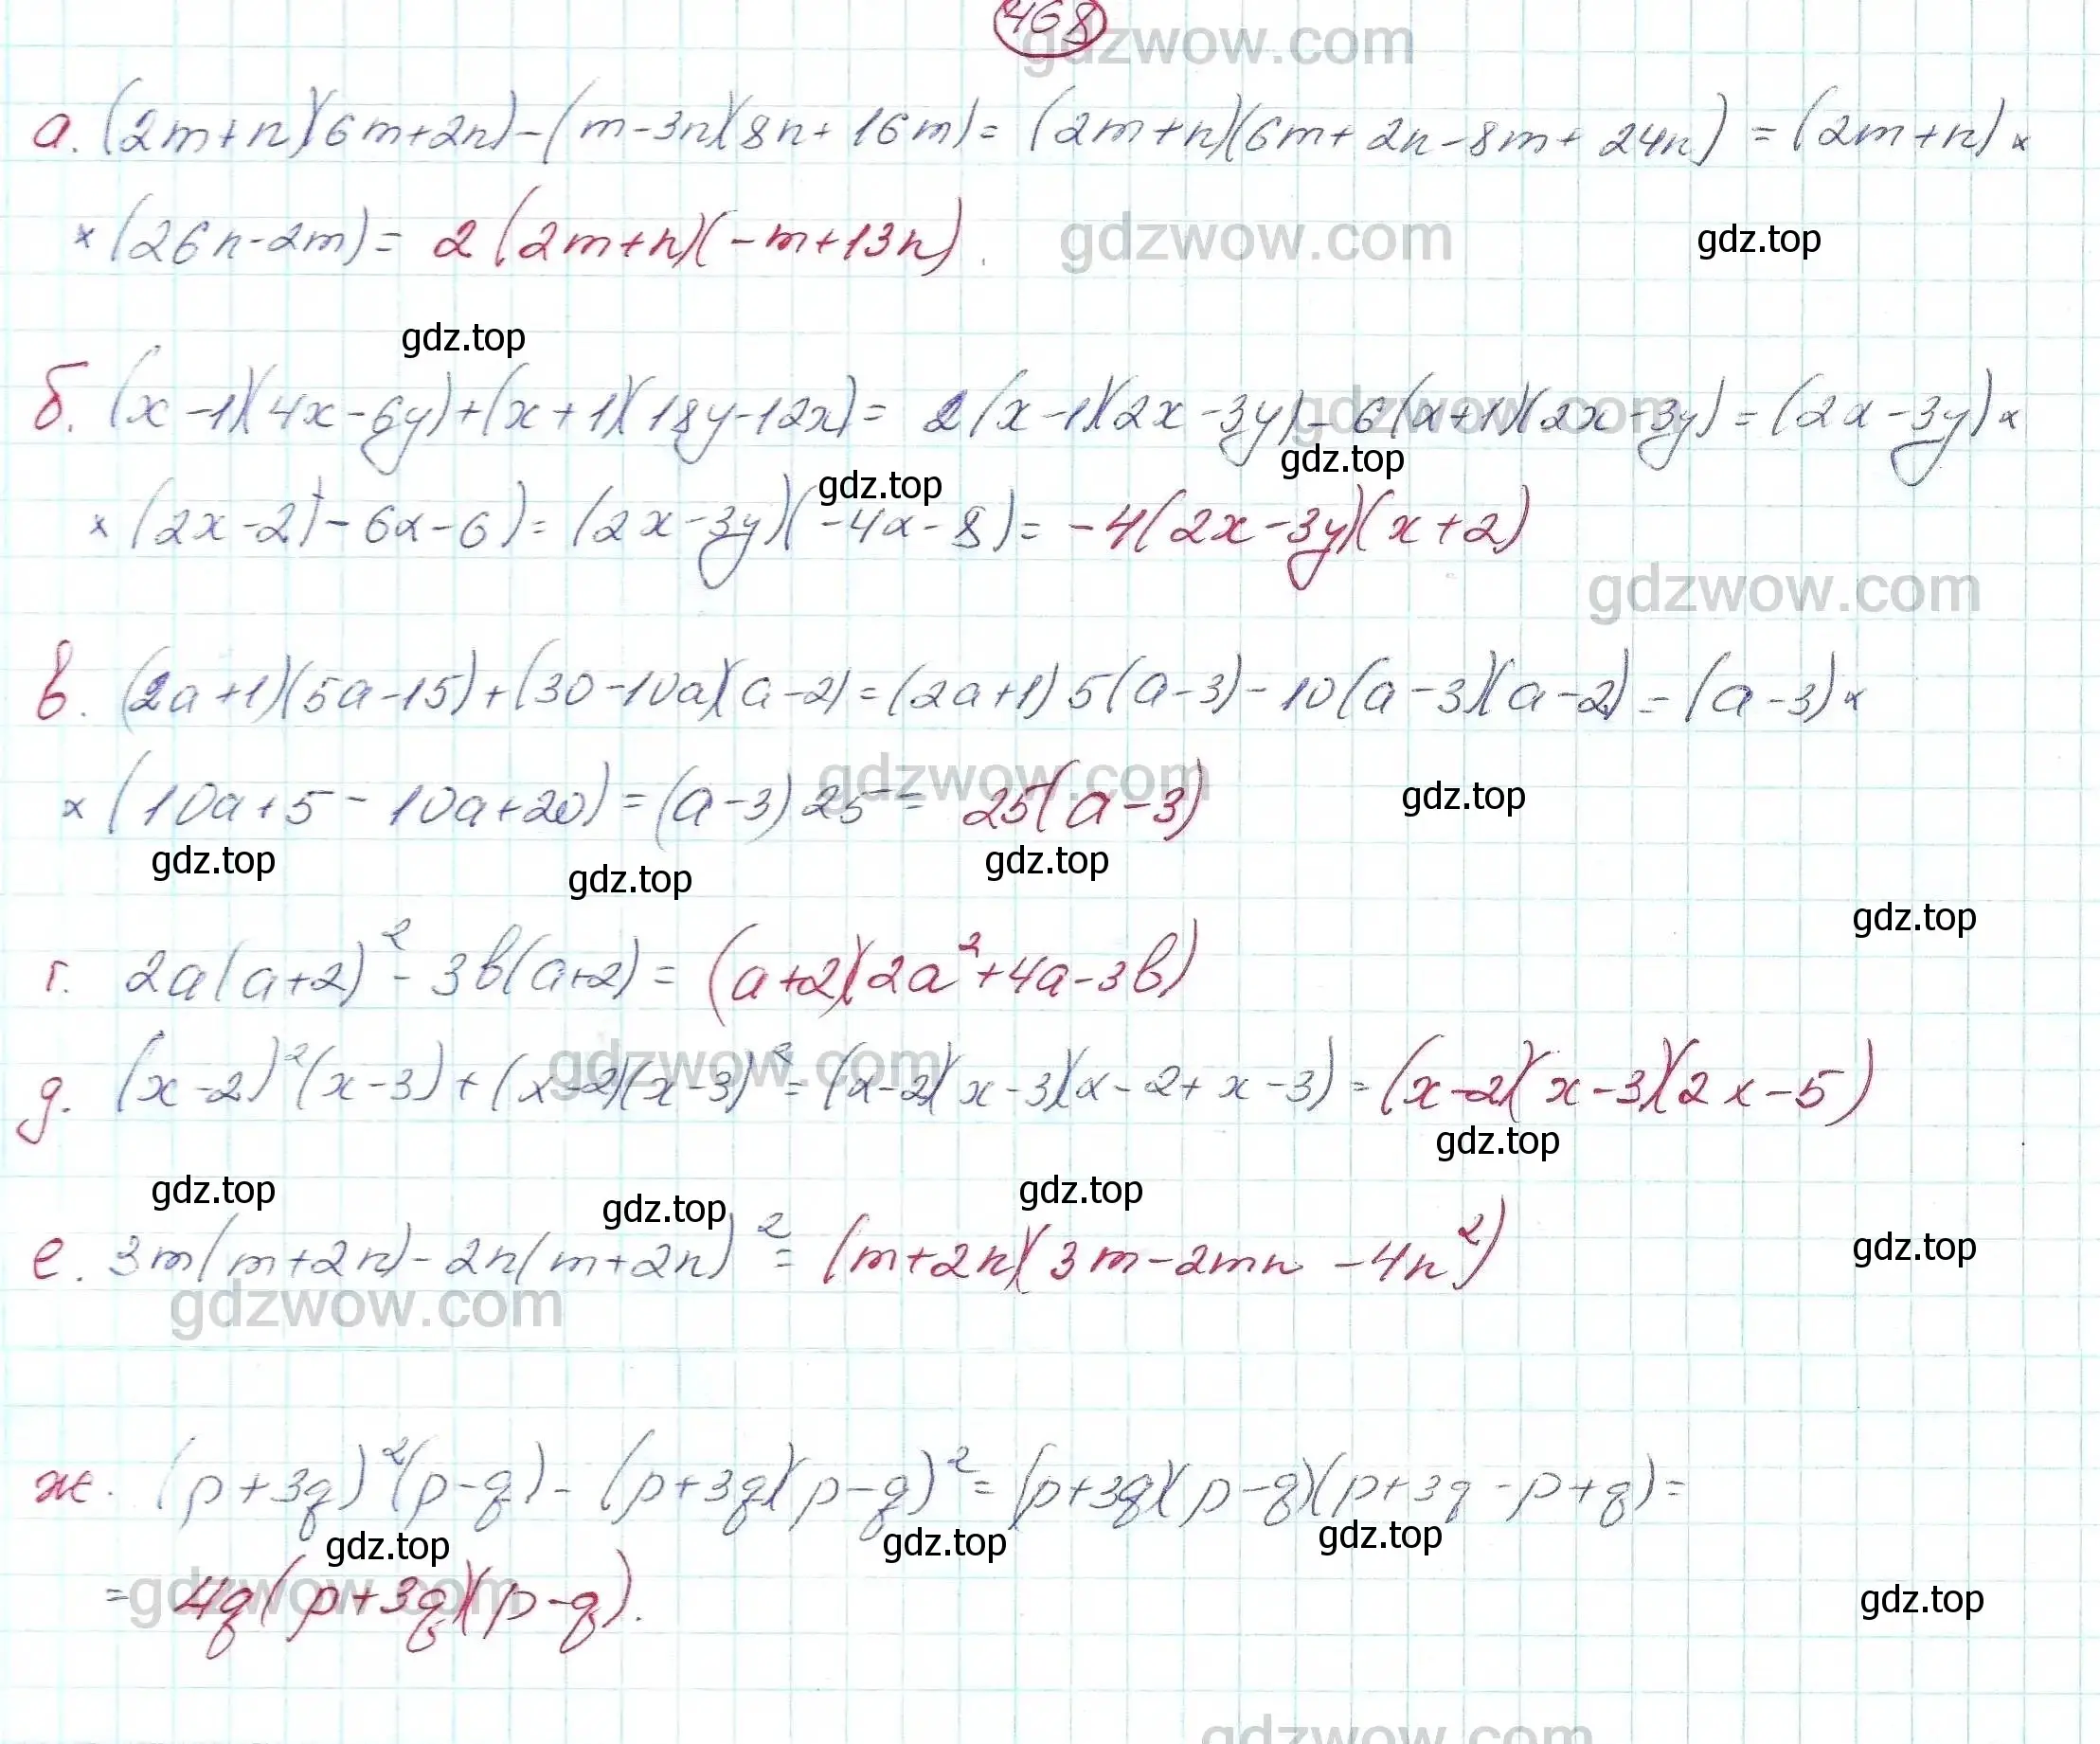 468
gdzwow.com
а. (2m+n)(6m+2n)-(m-3n)(8n+16m)=(2m+n)(6m+2n-8m+24n)=(2m+n)×
×(26n-2m)= 2(2m+n)(-m+13n).
gdzwow.com
gdz.top
gdz.top
б. (x-1)(4x-6y)+(x+1)(18y-12x)= 2(x-1)(2x-3y)-6(x+1)(2x-3y)=(2x-3y)×
gdzwow.com
gdz.top
gdz.top
×(2x-2)-6x-6)=(2x-3y)(-4x-8)=-4(2x-3y)(x+2)
gdzwow.com
в. (2a+1)(5a-15)+(30-10a)(a-2)=(2a+1)5(a-3)-10(a-3)(a-2)=(a-3)×
gdzwow.com
×(10a+5-10a+20)=(a-3)25= 25(a-3)
gdz.top
gdz.top
gdz.top
gdz.top
gdz.top
г. 2a(a+2)²-3b(a+2)=(a+2)(2a²+4a-3b)
gdzwow.com
д. (x-2)²(x-3)+(x-2)(x-3)²=(x-2)(x-3)(x-2+x-3)=(x-2)(x-3)(2x-5)
gdz.top
gdz.top
gdz.top
gdz.top
е. 3m(m+2n)-2n(m+2n)²=(m+2n)(3m-2mn-4n²)
gdz.top
gdzwow.com
ж. (p+3q)²(p-q)-(p+3q)(p-q)²=(p+3q)(p-q)(p+3q-p+q)=
gdz.top
gdz.top
gdz.top
= 4q(p+3q)(p-q).
gdzwow.com
gdz.top
gdzwow.com